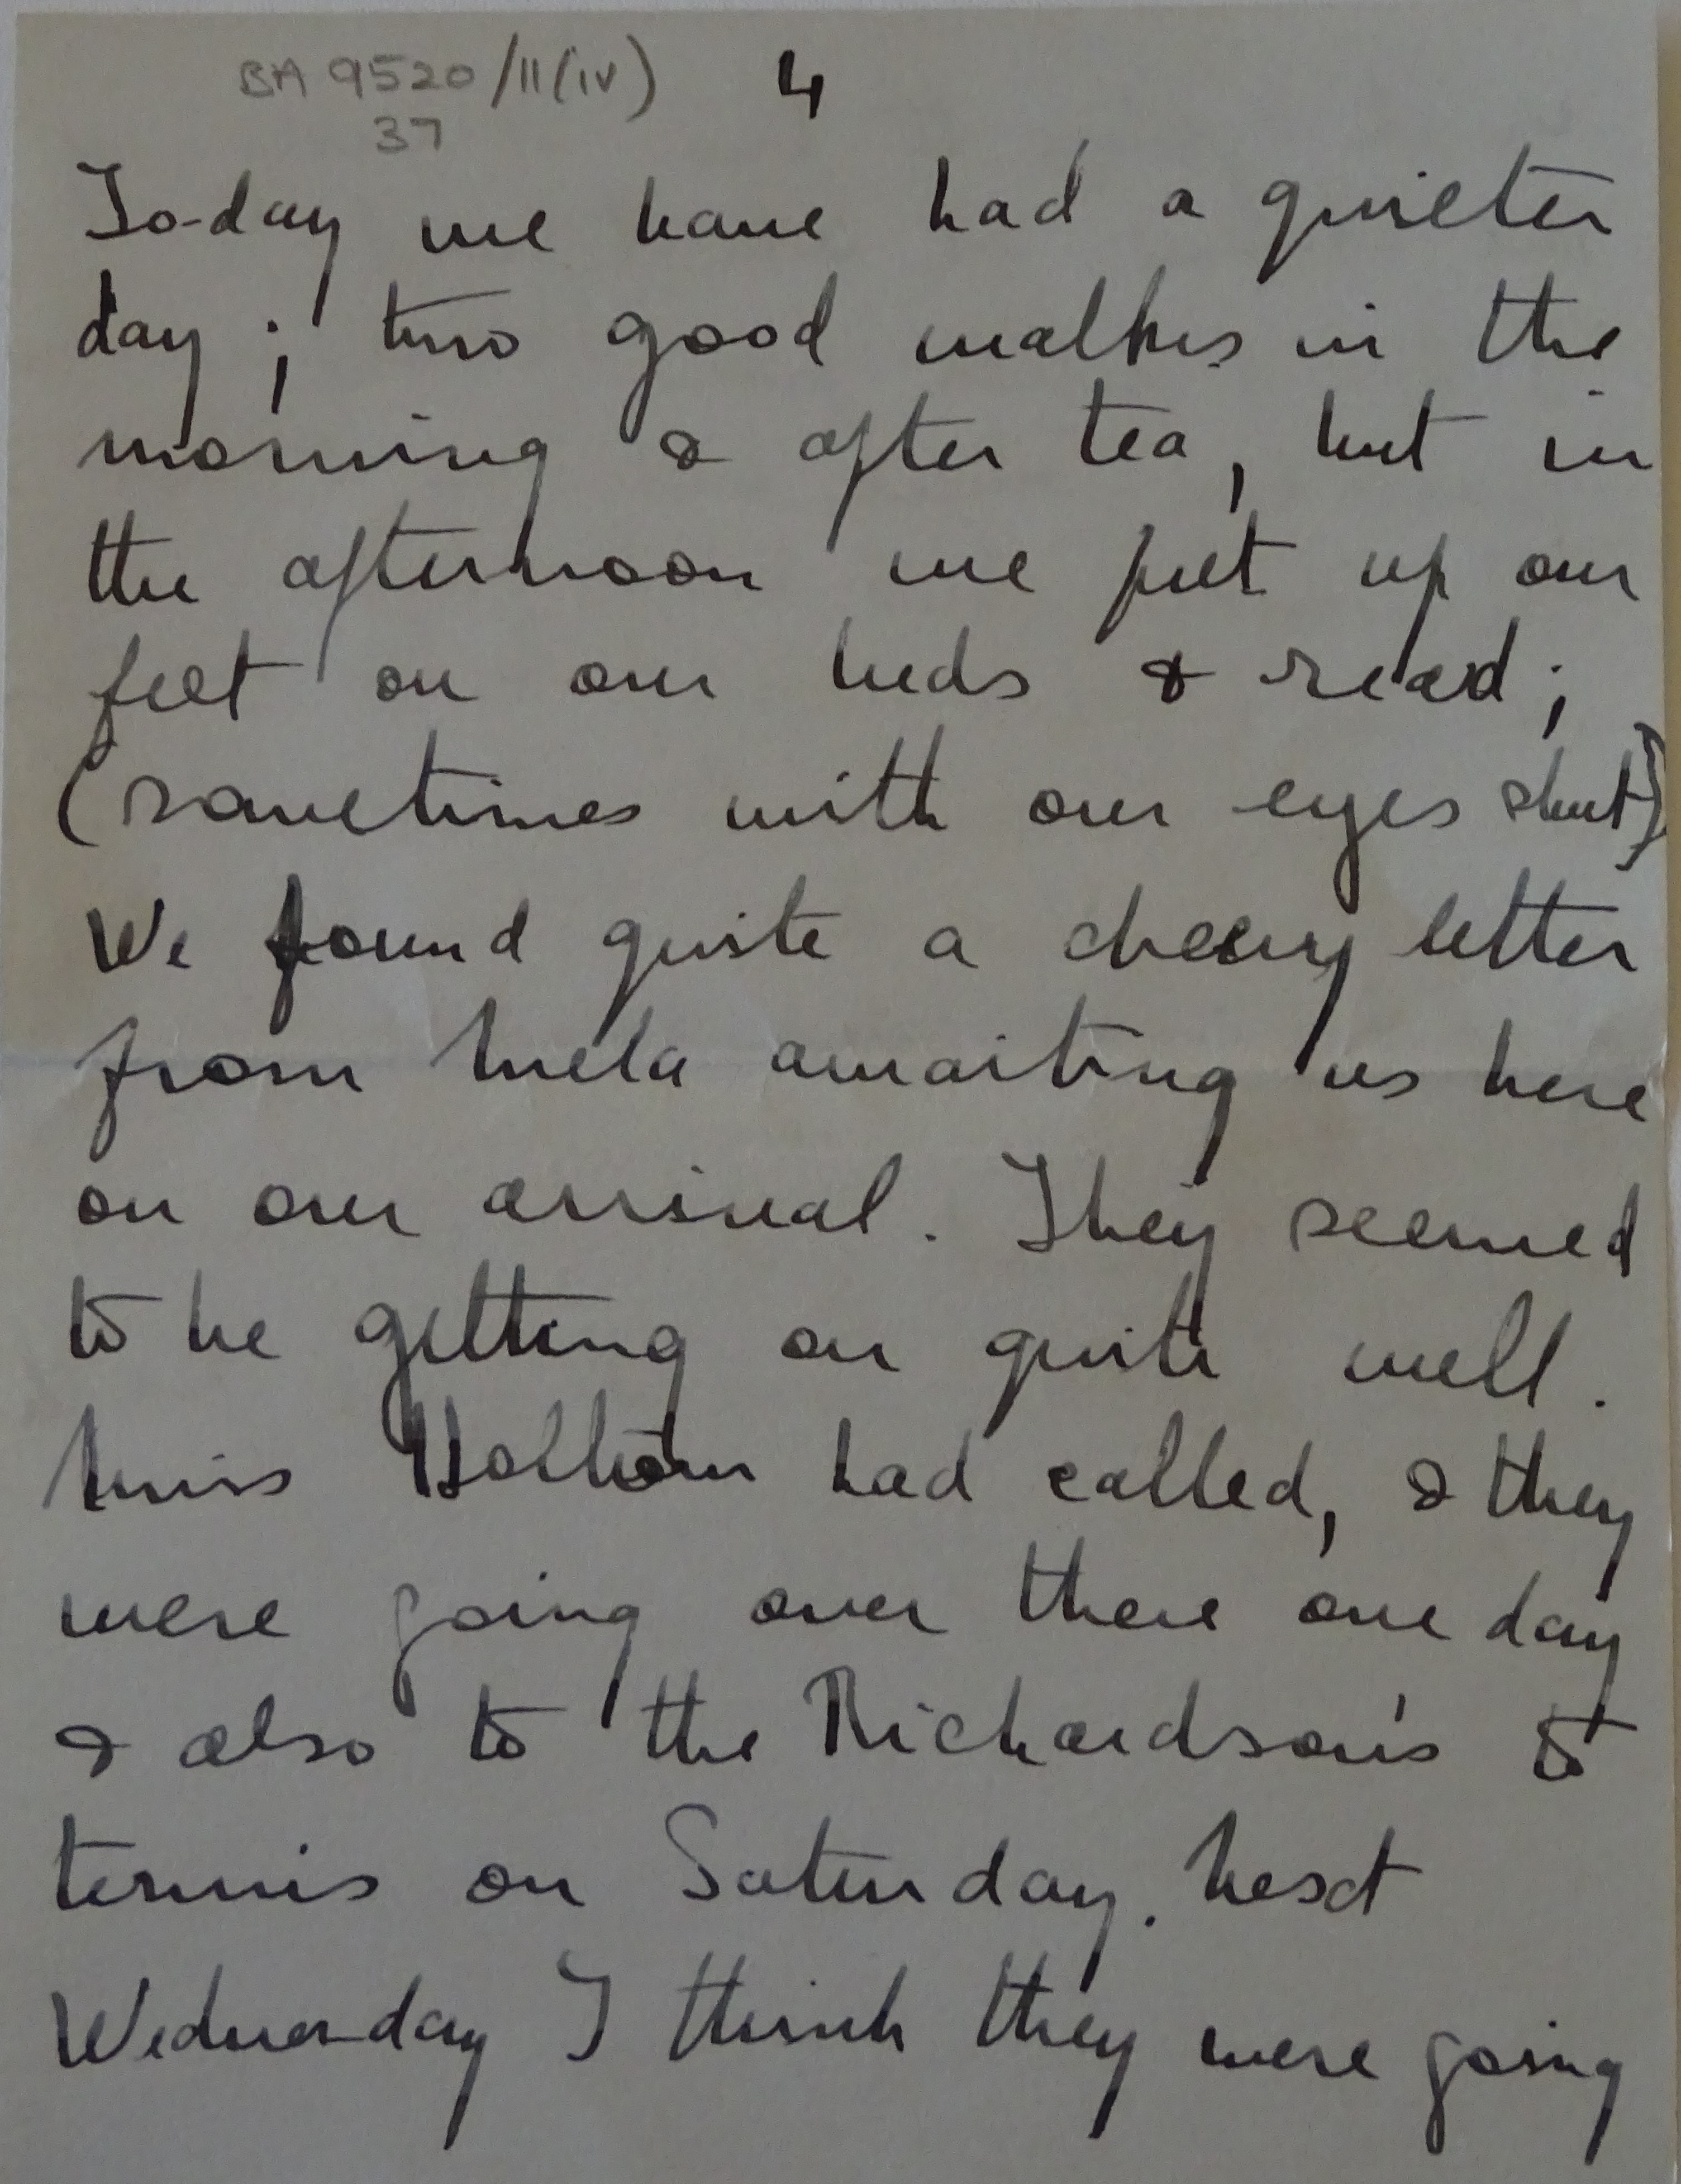 BA 9520/11(iv) 4
37
To-day we have had a quieter
day; two good walks in the
morning & after tea, but in
the afternoon we put up our
feet on our beds & read;
(sometimes with our eyes shut)
We found quite a cheery letter
from Mela awaiting us here
on our arrival. They seemed
to be getting on quite well.
Miss had called, & they
were going over there one day
& also to the Richardson's to
tennis on Saturday. Next
Wednesday I think they were going